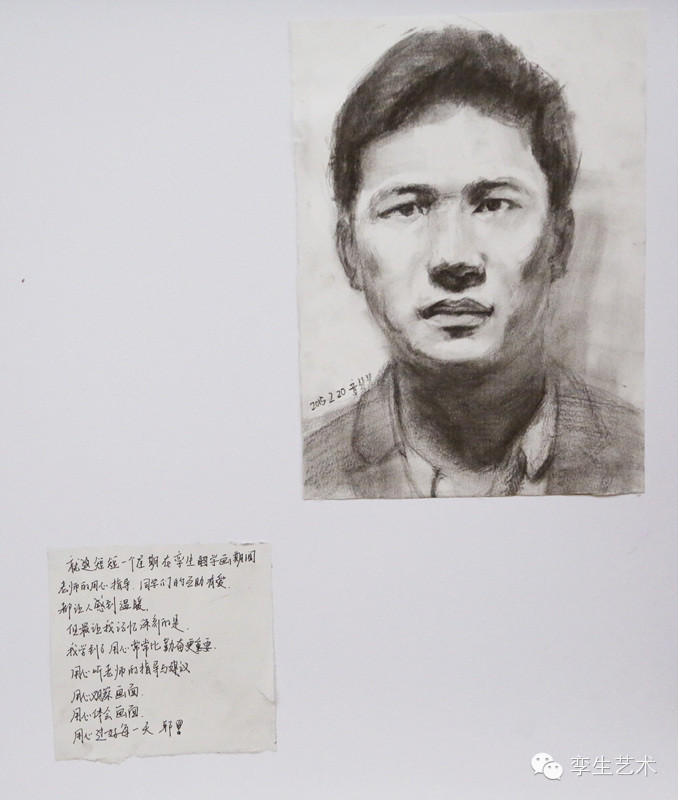 2015.2.20
就这短短一个在期在孪生的学画期间
老师的用心指导、同学们的互助有爱
都让人感到温暖.
但最让我记忆深刻的是.
我学到了用心常常比勤奋更重要.
用心听老师的指导与建议
用心观察画面.
用心体会画面.
用心过好每一天
孪生艺术